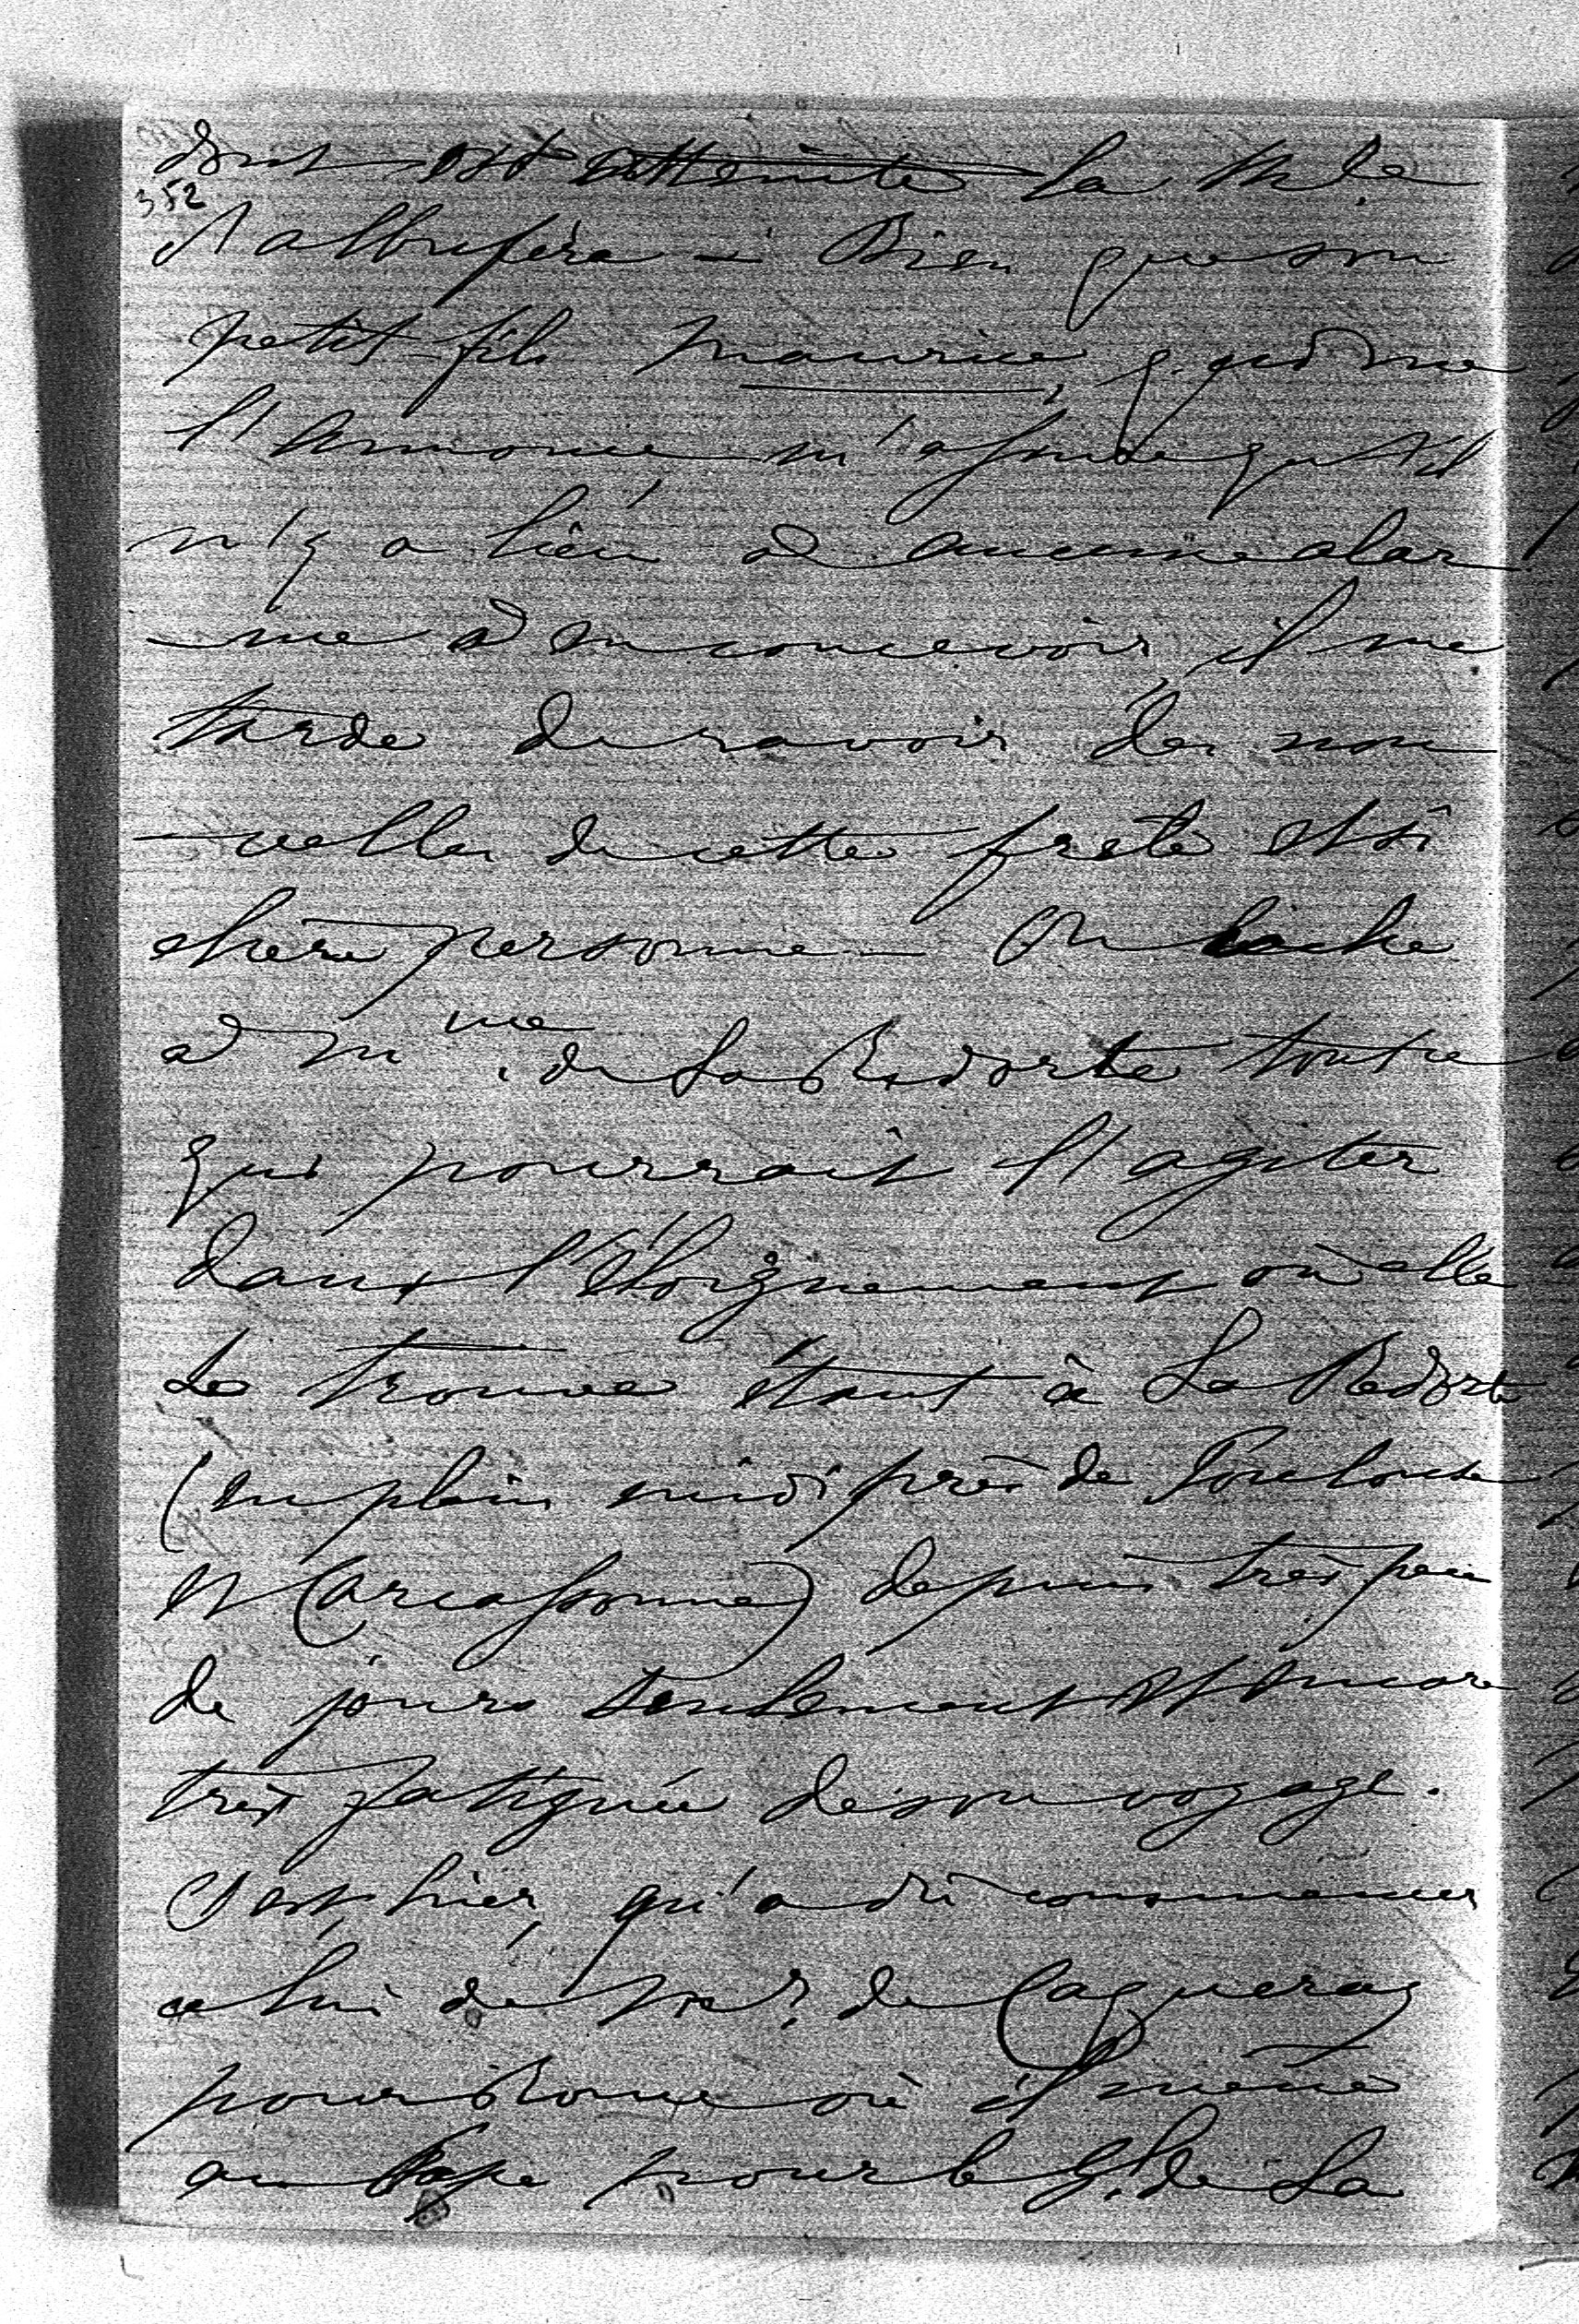 dont est atteinte la M.le
352
d'albuféra — Bien que son
petit-fils Maurice, q. qui me
l'annonce m'ajoute qu'il
n'y a lieu à aucune alar
-me à en concevoir, il me
tarde de savoir des nou
-velles de cette frêle et si
chère personne — On cache
à Mme. de La Redorte tout ce
qui pourrait l'agiter
dans l'éloignement où elle
se trouve étant à La Redorte
(en plein midi près de Toulouse
et Carcassonne) depuis très peu
de jours seulement et encore
très fatiguée de son voyage.
C'est, hier, qu'a dû commencer
celui de Mr. de Caqueray
pour Rome où il mène
au Pape pour le G.l de La